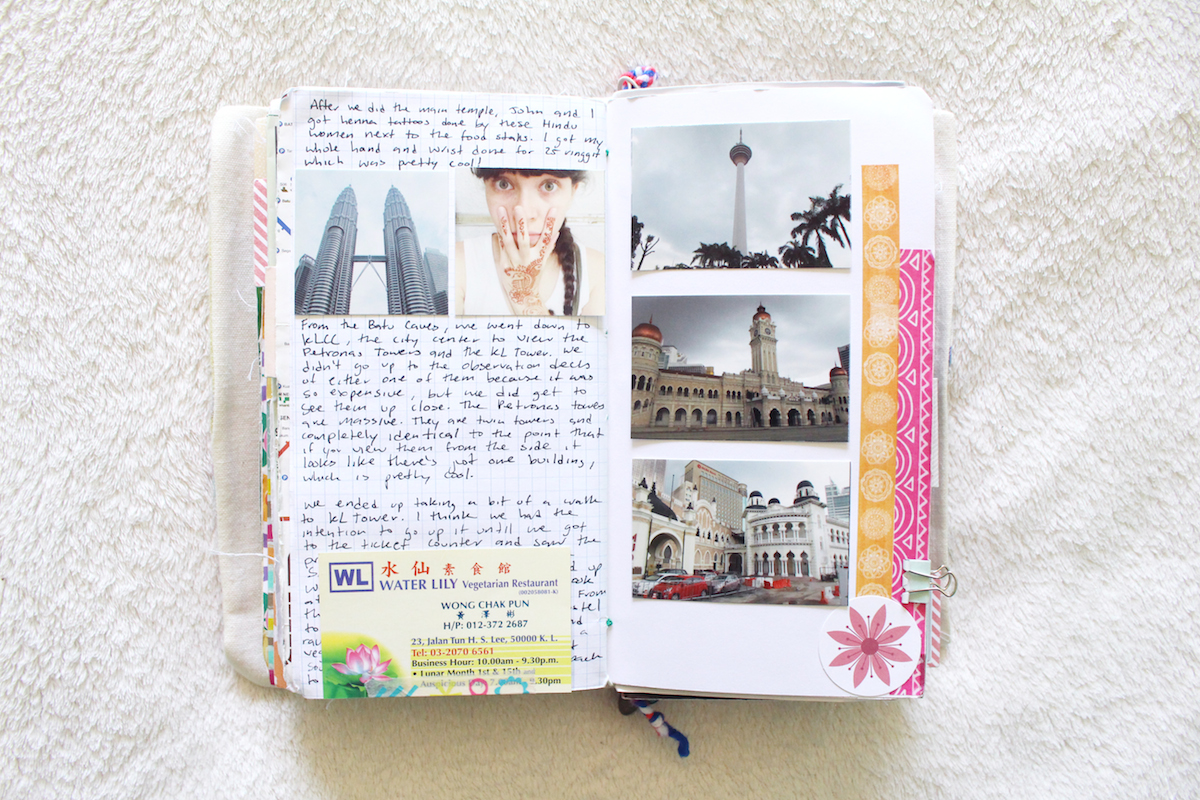 After we did the main temple, John and I
got henna tattoos done by these Hindu
women next to the food stalls. I got my
whole hand and wrist done for 25 ringgit
which was pretty cool!
From the Batu Caves, we went down to
KLCC, the city center to view the
Petronas Towers and the KL Tower. We
didn't go up to the observation decks
of either one of them because it was
so expensive, but we did get to
see them up close. The Petronas towers
are massive. They are twin towers and
completely identical to the point that
if you view them from the side it
looks like there's just one building,
which is pretty cool.
We ended up taking a bit of a walk
to KL Tower. I think we had the
intention to go up it until we got
to the ticket counter and saw the
WL
水仙素食館
WATER LILY Vegetarian Restaurant
(002058081-K)
WONG CHAK PUN
黃澤彬
H/P: 012-372 2687
23, Jalan Tun H. S. Lee, 50000 K. L.
Tel: 03-2070 6561
Business Hour: 10.00am - 9.30p.m.
• Lunar Month 1st & 15th and
.30pm
up
From
and
a